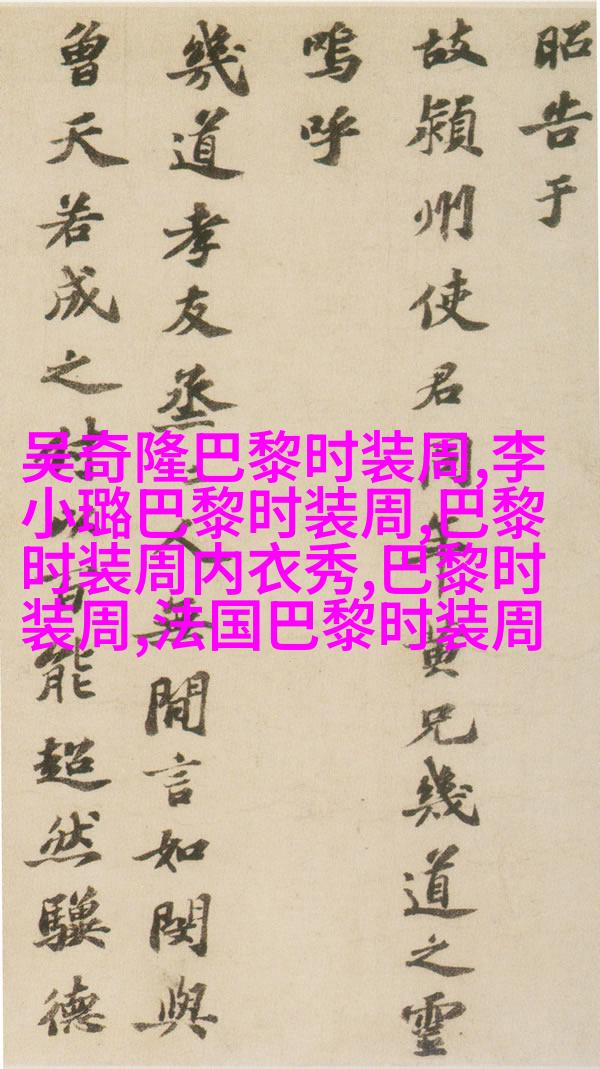 昭告于
故潁州使君同年黄兄幾道之靈
嗚呼
幾道孝友烝人無間言如閔與
曾天若成之付以百能超然驥德
吴奇隆巴黎时装周,李
小璐巴黎时装周,巴黎
时装周内衣秀,巴黎时
装周,法国巴黎时装周